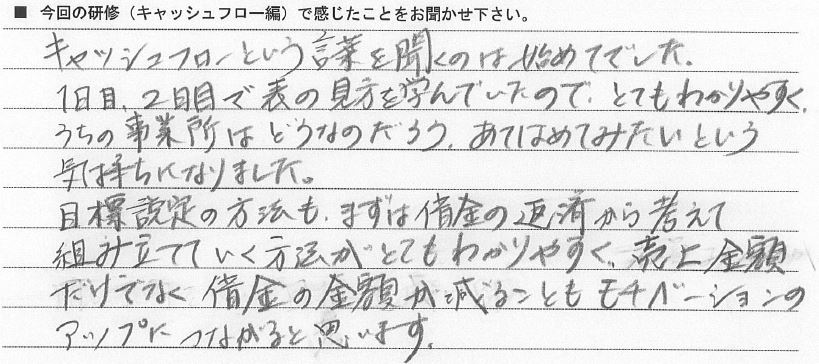 ■ 今回の研修（キャッシュフロー編）で感じたことをお聞かせ下さい。
キャッシュフローという言葉を聞くのは始めてでした。
1日目、2日目で表の見方を学んでいたので、とてもわかりやすく、
うちの事業所はどうなのだろう、あてはめてみたいという
気持ちになりました。
目標設定の方法も、まずは借金の返済から考えて
組み立てていく方法がとてもわかりやすく、売上金額
だけでなく借金の金額が減ることもモチベーションの
アップにつながると思います。